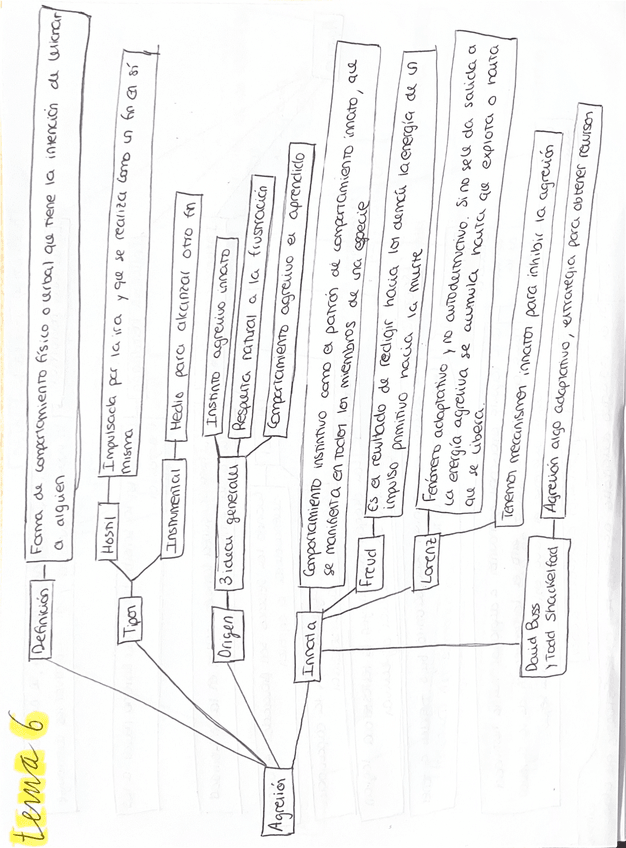 tema 6
Agresión
Definición
Forma de comportamiento físico o verbal que tiene la intención de lesionar
a alguien
Tipos
Hostil
Impulsada por la ira y que se realiza como un fin en sí
misma
Instrumental
Medio para alcanzar otro fin
Origen
3 ideas generales
Instinto agresivo innato
Respuesta natural a la frustración
Comportamiento agresivo es aprendido
Innata
Comportamiento instintivo como el patrón de comportamiento innato, que
se manifiesta en todos los miembros de una especie
Freud
Es el resultado de redirigir hacia los demás la energía de un
impulso primitivo hacia la muerte
Lorenz
Fenómero adaptativo y no autodestructivo. Si no se le da salida a
la energía agresiva se acumula hasta que explota o hasta
que se libera.
Tenemos mecanismos innatos para inhibir la agresión
David Buss
y Todd Shackelford
Agresión algo adaptativo, estrategia para obtener recursos